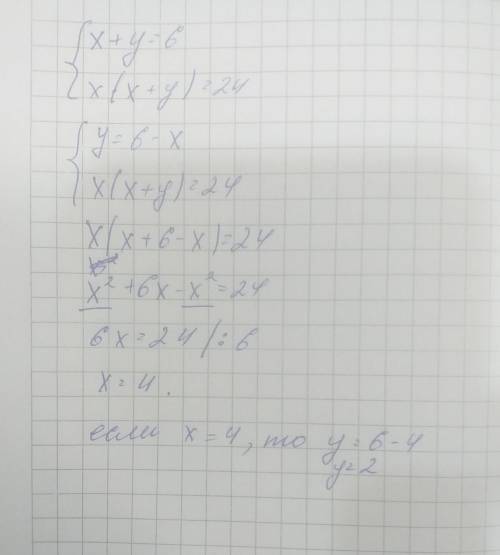 { x + y = 6
x (x + y) = 24
{ y = 6 - x
x (x + y) = 24
x (x + 6 - x) = 24
x² + 6x - x² = 24
6x = 24 / : 6
x = 4.
если x = 4, то y = 6 - 4
y = 2